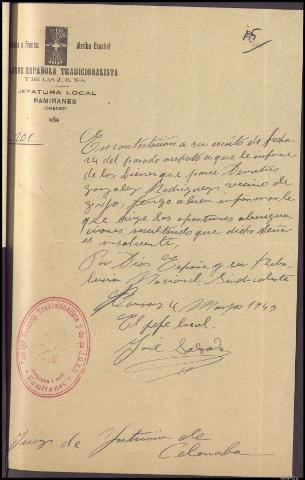 a Franco Arriba España!
ESPAÑOLA TRADICIONALISTA
Y DE LAS J. O. N-S.
JEFATURA LOCAL
RAMIRANES
(ORENSE)
201
En contestación a su escrito de fecha
24 del pasado respecto a que le informe
de los bienes que posee
González Rodríguez, vecino de
tengo a bien informarle
que hize las oportunas abengua
ciones resultando que dicho Señor
es insolvente,
Por Dios España y su Rebo
lución Nacional Sindicalista
4 Marzo 1943
El jefe local
José Salgado
Falange Española Tradicionalista y de las J.O.N.S.
Jefatura Local
Ramiranes
Juez de Instrucción de
Celanoba